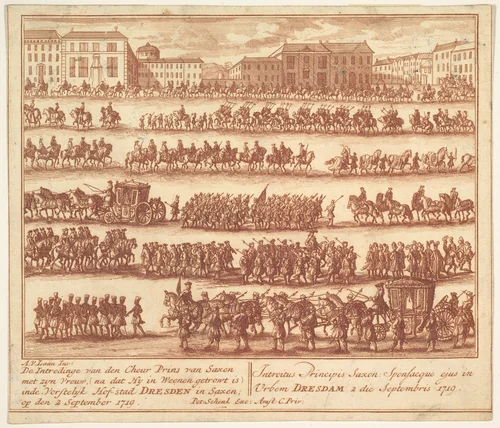 A.V. Laan Inv:
De Intredinge van den Cheur Prins van Saxen
met zyn Vrouw, (na dat Hy in Weenen getrowt is)
inde Vorstelyk Hof-stad DRESDEN in Saxen,
op den 2 September 1719.
Pet. Schenk Exc: Amst C. Priv:
Introitus Principis Saxon: Sponsaeque ejus in
Urbem DRESDAM 2 die Septembris 1719.